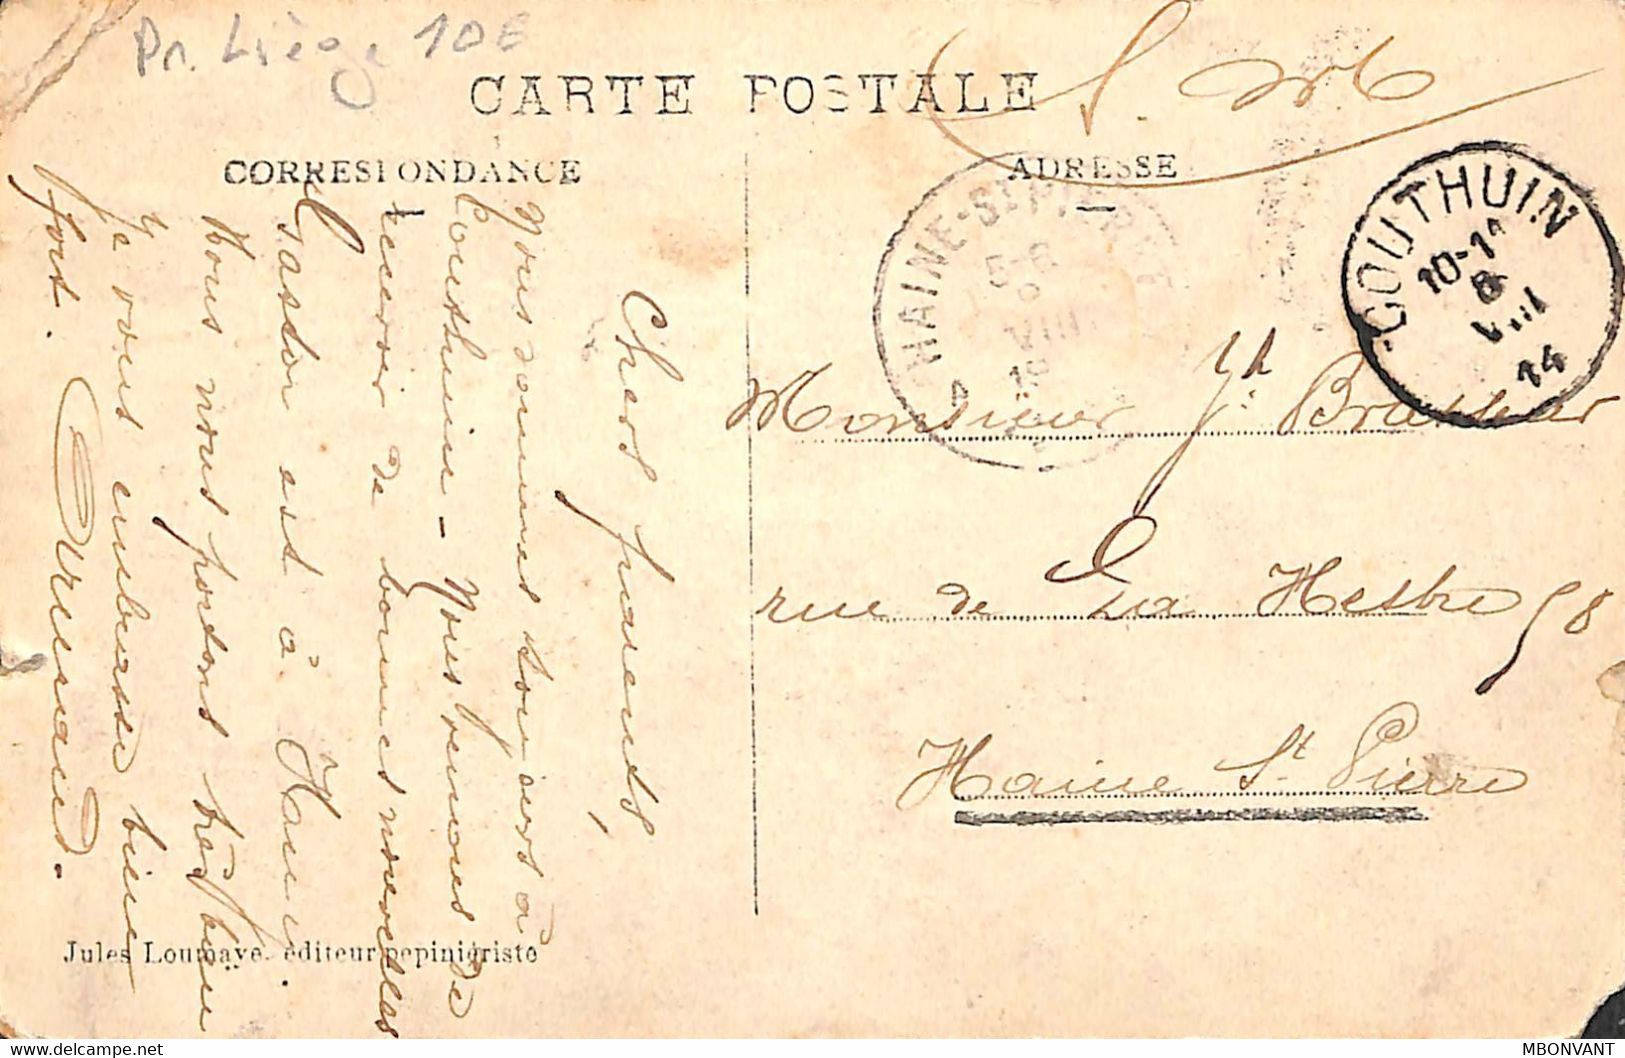 Pr. Liège 10€
CARTE POSTALE
S. M.
CORRESPONDANCE
ADRESSE
HAINE-ST-PIERRE
5-6
8
VIII
COUTHUIN
10-11
8
VIII
14
Chers parents,
Nous sommes toujours à
Couthuin - Nous venons de
recevoir de bonnes nouvelles
Gaston est à Hanu.
Nous nous portons très bien
Je vous embrasse bien
fort.
Monsieur Jh.
rue de La Hestre 58
Haine St Pierre
Jules Loumaye, éditeur pepiniériste
MBONVANT